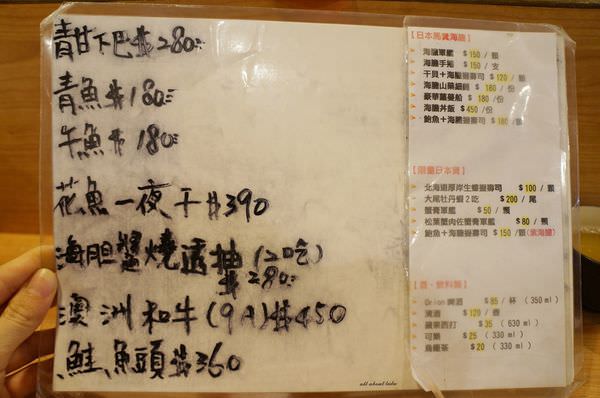 青甘下巴$280元
青魚$180元
午魚$180元
花魚一夜干$390
海胆醬燒透抽(2吃)
$280元
澳洲和牛(9A)$450
鮭魚頭$360
all about
【日本馬糞海膽】
海膽軍艦 $150 / 顆
海膽手捲 $150 / 支
干貝+海膽握壽司 $120 / 顆
海膽山藥細麵 $160 / 份
豪華蘿蔓船 $180 / 份
海膽丼飯 $450 / 份
鮑魚+海膽握壽司 $180 / 顆
【限量日本貨】
北海道厚岸生蠔握壽司 $100 / 顆
大尾牡丹蝦2吃 $200 / 尾
蟹膏軍艦 $50 / 顆
松葉蟹肉佐蟹膏軍艦 $80 / 顆
鮑魚+海膽握壽司 $150 / 顆(紫海膽)
【酒、飲料類】
Orion 啤酒 $85 / 杯 (350 ml)
清酒 $120 / 壺
蘋果西打 $35 (630 ml)
可樂 $25 (330 ml)
烏龍茶 $20 (330 ml)